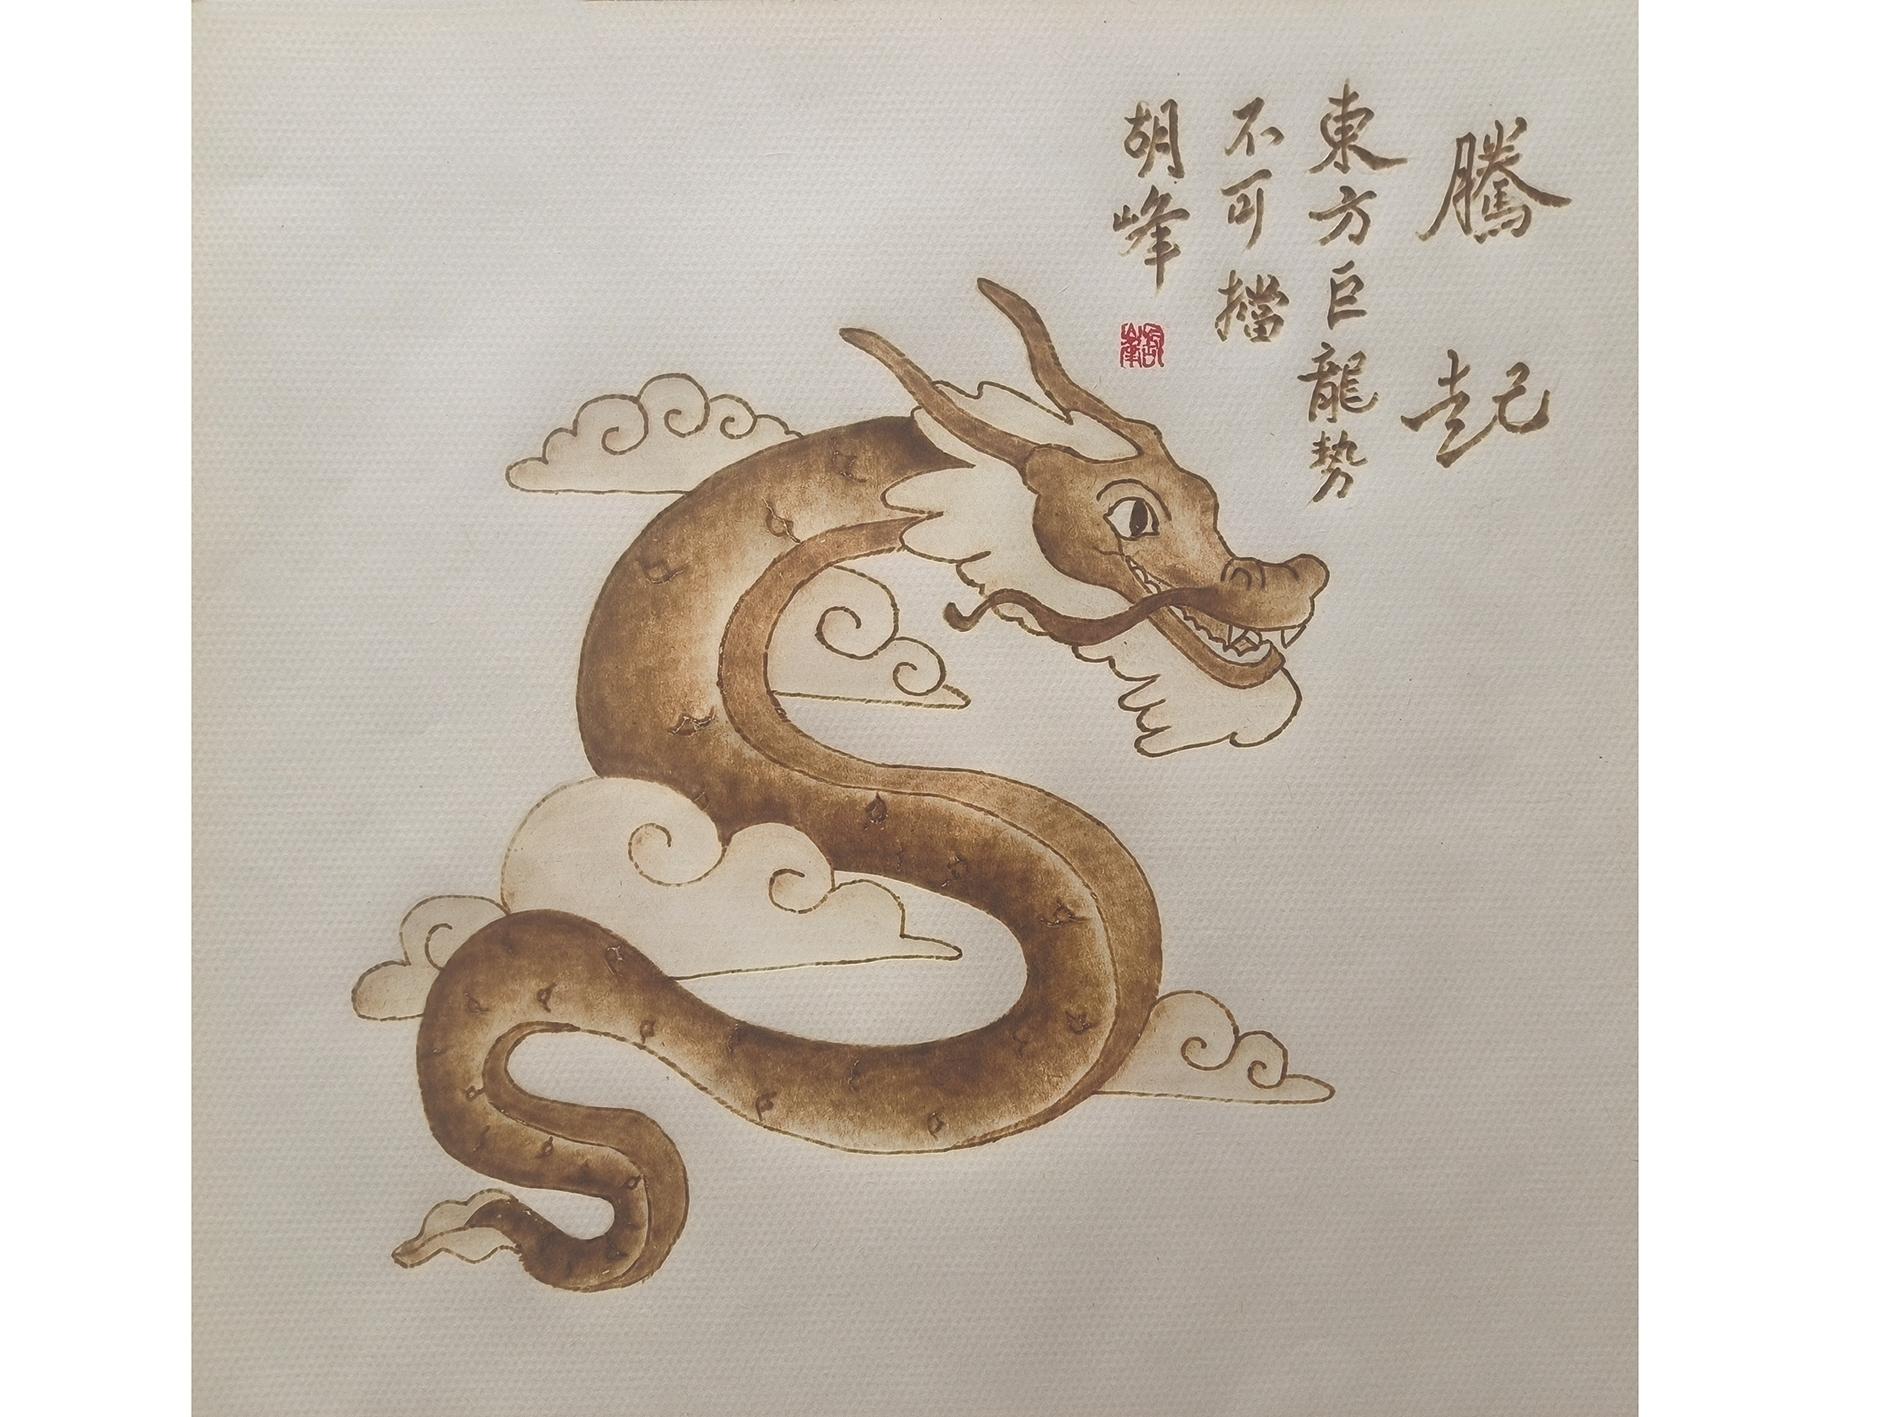 騰起
東方巨龍勢
不可擋
胡峰
胡峯